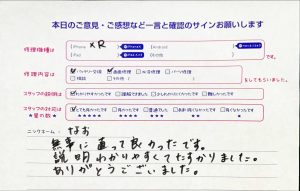 本日のご意見・ご感想など一言と確認のサインお願いします
修理機種は iPhone XR Android
iPad その他
修理内容は バッテリー交換 画面修理 水没修理 パーツ修理
その他 をしてもらいました。
スタッフの説明は わかりやすくできた
スタッフの対応は とても良かった 良かった 普通でした
★星の数★ ★★★★★ ★★★★ ★★★ ★★ ★
ニックネーム: なお
無事に直って良かったです。
説明わかりやすくてたすかりました。
ありがとうございました。